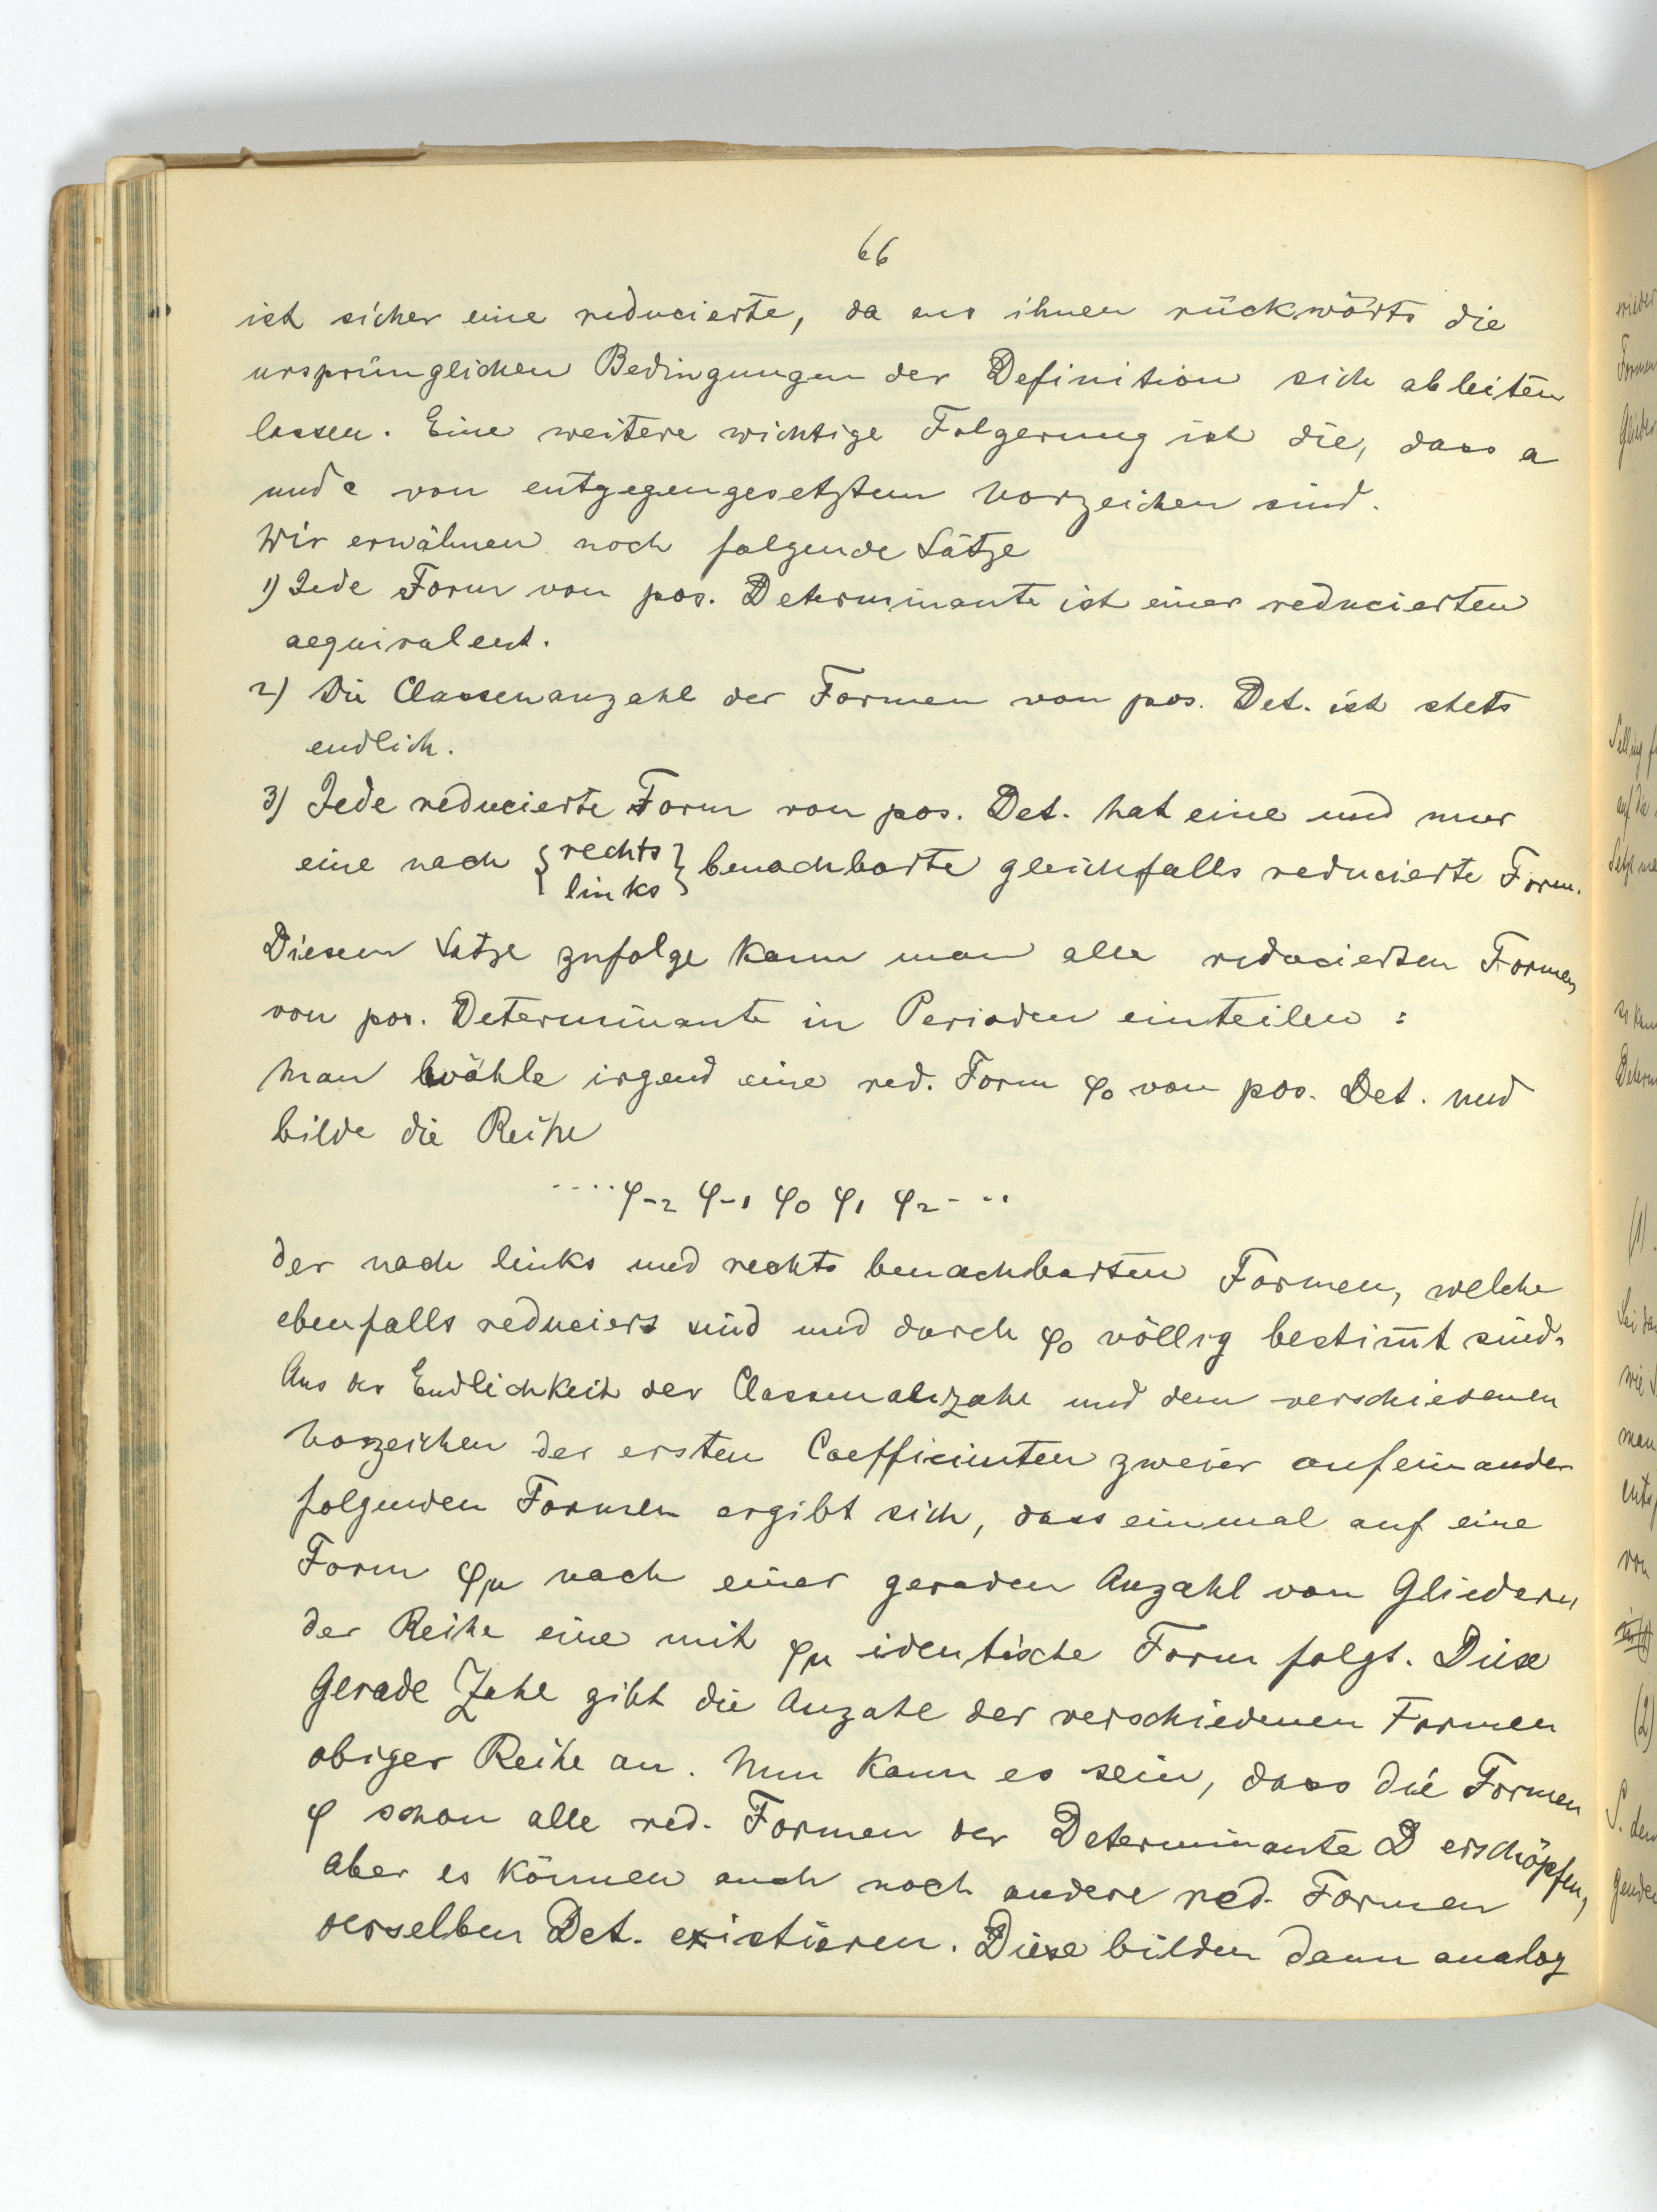 66
ist sicher eine reducierte, da aus ihnen rückwärts die
ursprünglichen Bedingungen der Definition sich ableiten
lassen. Eine weitere wichtige Folgerung ist die, dass a
und c von entgegengesetztem Vorzeichen sind.
Wir erwähnen noch folgende Sätze
1) Jede Form von pos. Determinante ist einer reducierten
aequivalent.
2) Die Classenanzahl der Formen von pos. Det. ist stets
endlich.
3) Jede reducierte Form von pos. Det. hat eine und nur
eine nach { rechts / links } benachbarte gleichfalls reducierte Form.
Diesem Satze zufolge kann man alle reducierten Formen
von pos. Determinante in Perioden einteilen :
Man wähle irgend eine red. Form φ₀ von pos. Det. und
bilde die Reihe
....φ₋₂ φ₋₁ φ₀ φ₁ φ₂...
der nach links und rechts benachbarten Formen, welche
ebenfalls reduciert sind und durch φ₀ völlig bestim̅t sind.
Aus der Endlichkeit der Classenanzahl und dem verschiedenen
Vorzeichen der ersten Coefficienten zweier aufeinander
folgenden Formen ergibt sich, dass einmal auf eine
Form φμ nach einer geraden Anzahl von Gliedern
der Reihe eine mit φμ identische Form folgt. Diese
Gerade Zahl gibt die Anzahl der verschiedenen Formen
obiger Reihe an. Nun kann es sein, dass die Formen
φ schon alle red. Formen der Determinante D erschöpfen,
aber es können auch noch andere red. Formen
derselben Det. existieren. Diese bilden dann analog